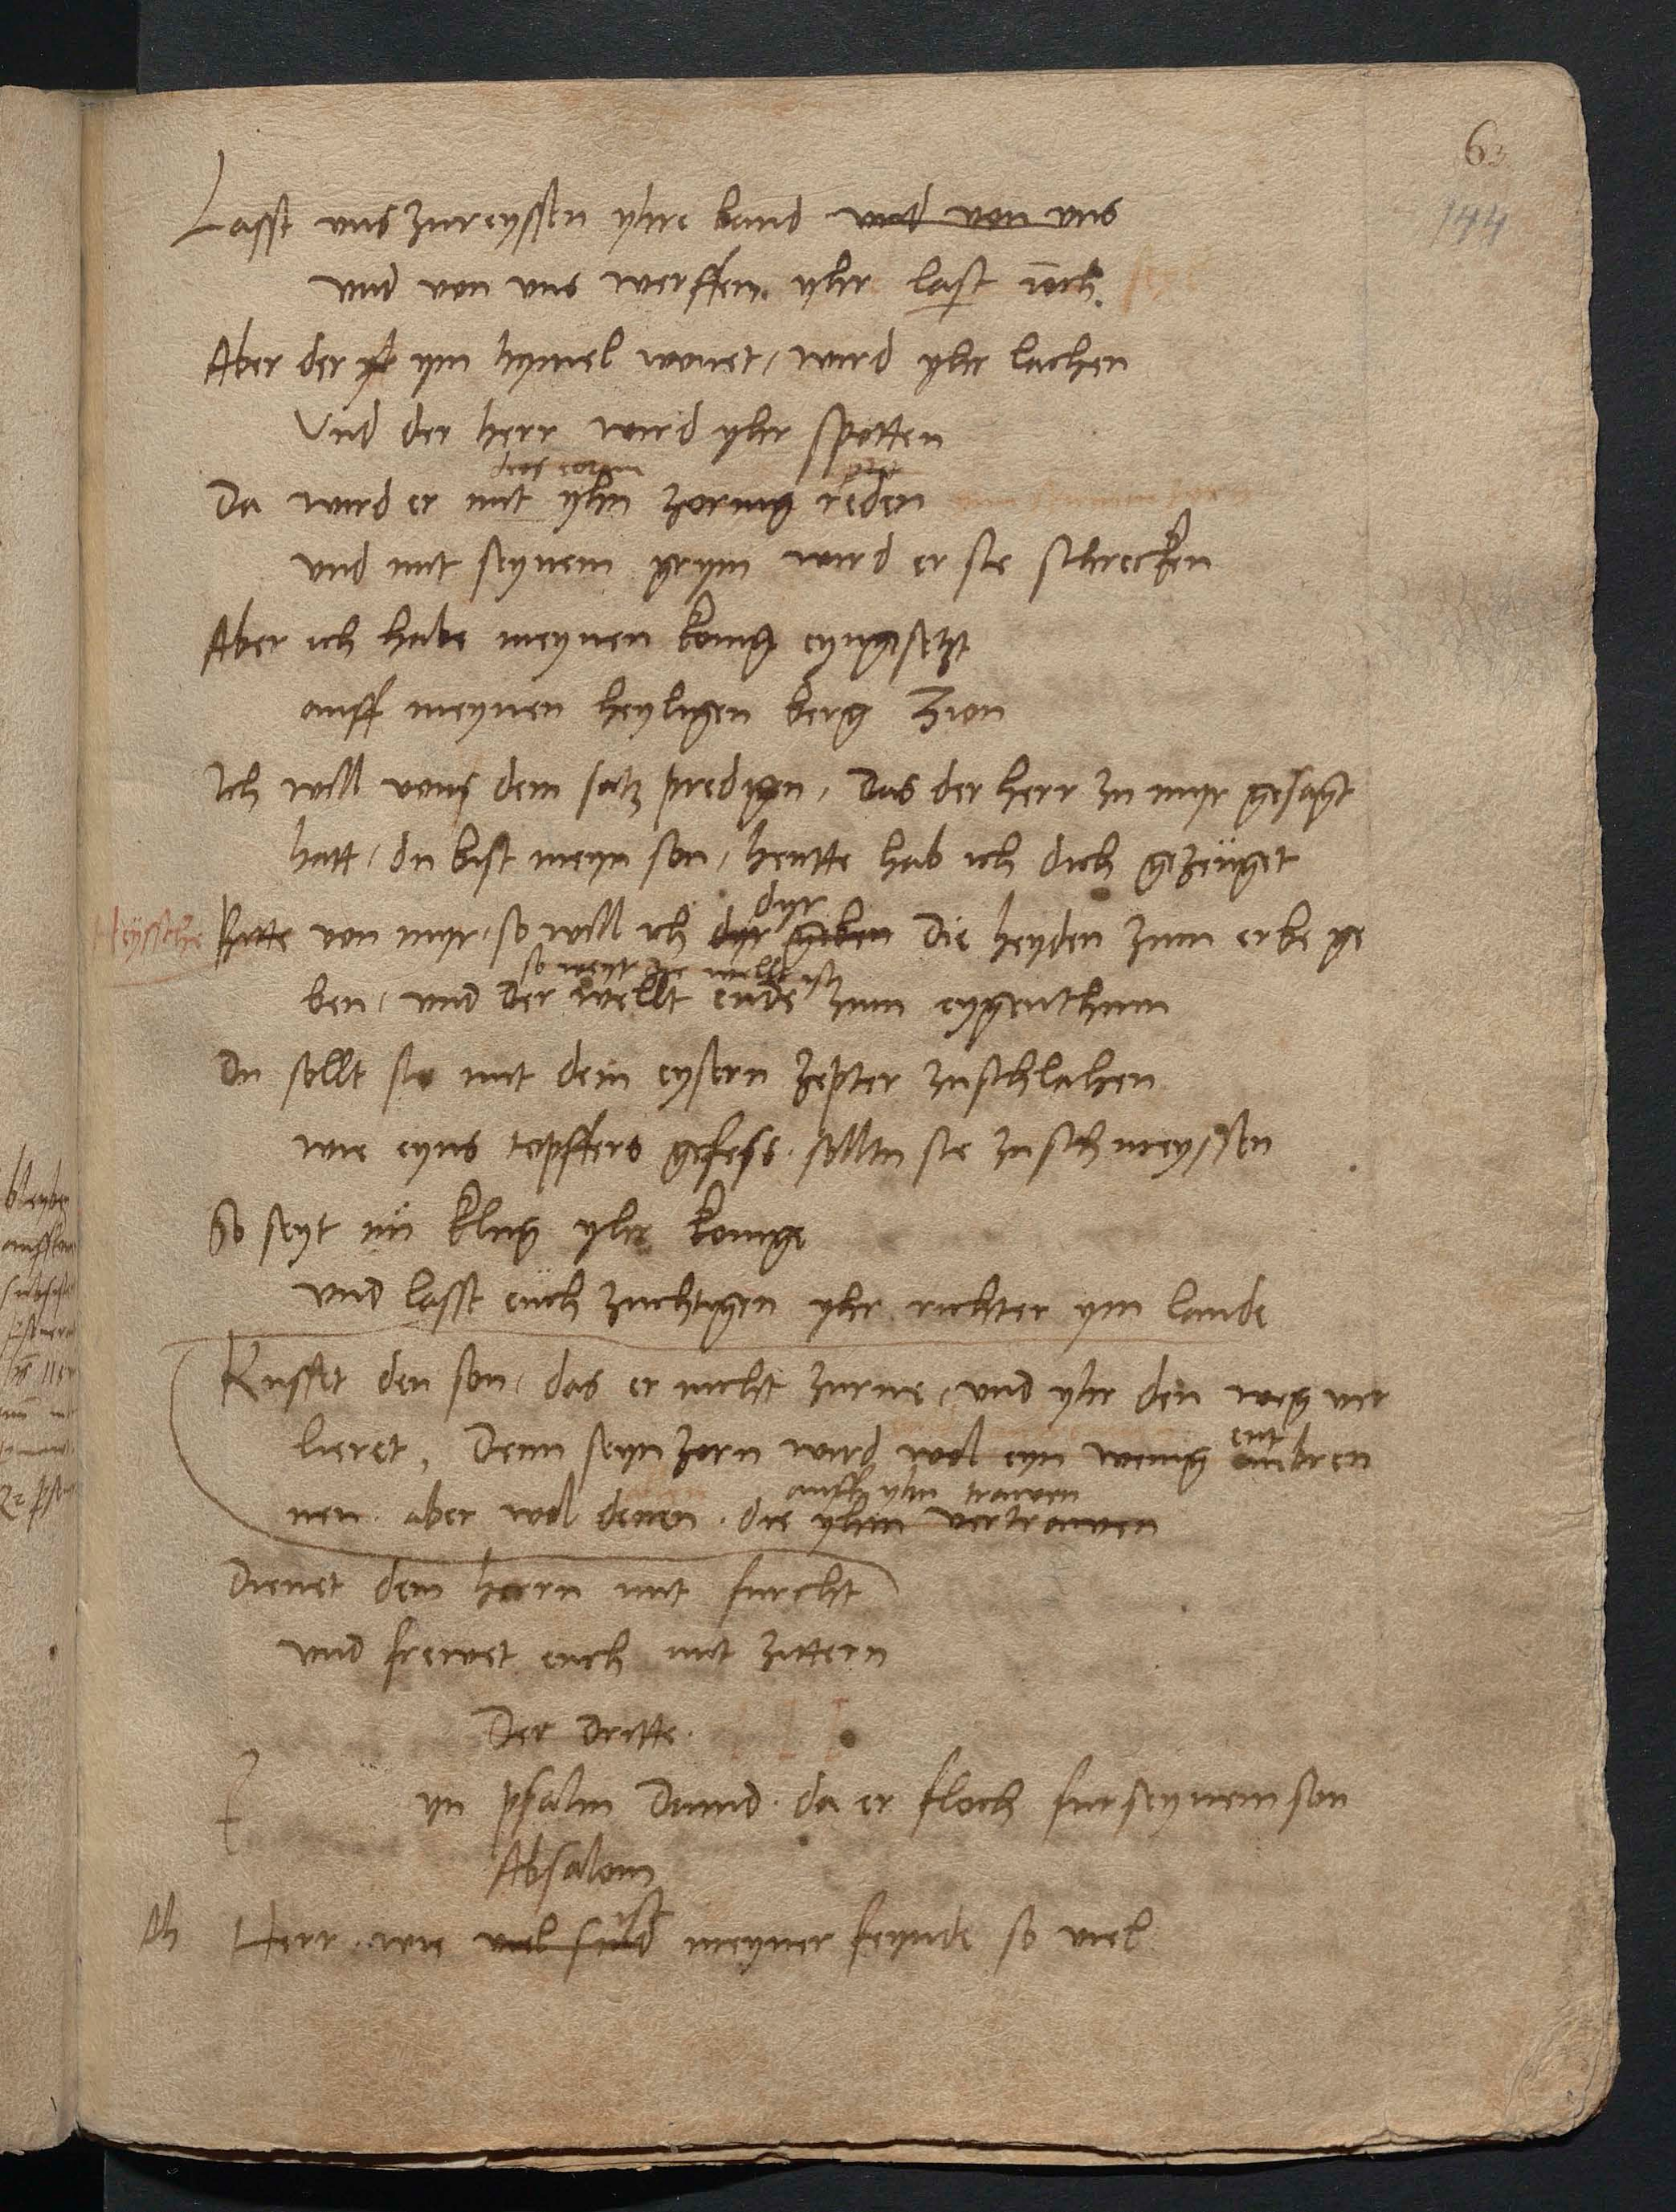 63
144
Lasst uns zureyssen yhre band und von uns
und von uns werffen yhr last
Aber der ym hymel wonet, wird yhr lachen
Und der herr wird yhr spotten
Da wird er mit yhn zornig reden
und mit seynem grym wird er sie schrecken
Aber ich habe meynen konig eyngesetzt
auff meynen heyligen berg Zion
Ich will von dem satz predigen, das der herr zu myr gesagt
hatt, du bist meyn son, heutte hab ich dich gezeuget
dyr
Heyssche Bitte von myr, so will ich dyr geben die heyden zum erbe ge
so weyt die wellt ist
ben, und der wellt ende zum eygenthum
Du sollt sie mit dem eysern zepter zuschlahen
wie eyns topffers gefess solltu sie zuschmeyssen
So seyt nu klug yhr konige
und lasst euch zuchtigen yhr richter ym lande
Kusset den son, das er nicht zurne, und yhr den weg ver
ent
lieret, Denn seyn zorn wird wol eyn wenig anbren
auff yhn trawen
nen aber wol denen die yhm vertrawen
Dienet dem herrn mit furcht
und frewet euch mit zittern
Der dritte.
E yn psalm David da er floch fur seynem son
Absalom
ist
Ah Herr wie viel sind meyner feynde so viel